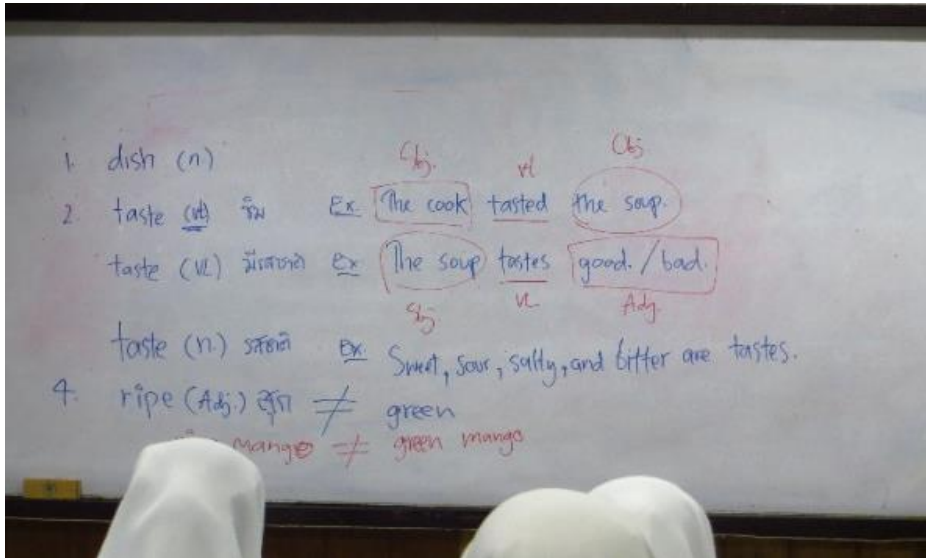 1. dish (n)
Sbj. vt Obj
2. taste (vt) ชิม Ex. The cook tasted the soup.
taste (VL) มีรสชาติ Ex The soup tastes good. / bad.
Sbj VL Adj.
taste (n.) รสชาติ Ex. Sweet, sour, salty, and bitter are tastes.
4. ripe (Adj.) สุก ≠ green
mango ≠ green mango